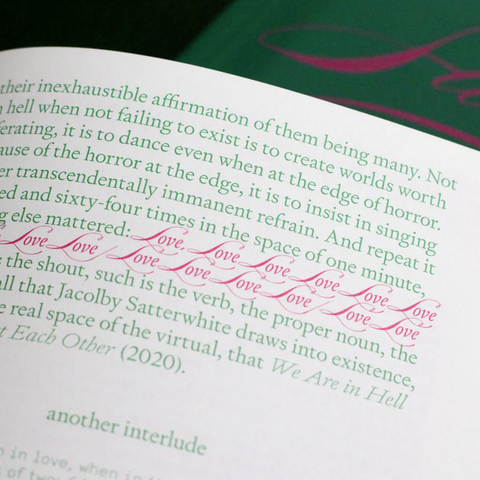 their inexhaustible affirmation of them being many. Not
hell when not failing to exist is to create worlds worth
ferating, it is to dance even when at the edge of horror.
ause of the horror at the edge, it is to insist in singing
er transcendentally immanent refrain. And repeat it
ed and sixty-four times in the space of one minute,
g else mattered: Love Love Love Love Love Love Love
Love Love / Love Love Love Love Love / Love Love
the shout, such is the verb, the proper noun, the
all that Jacolby Satterwhite draws into existence,
e real space of the virtual, that We Are in Hell
t Each Other (2020).
another interlude
in love, when in
of two